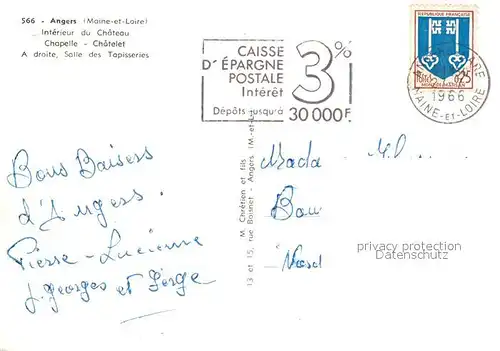 566 - Angers (Maine-et-Loire)
Intérieur du Château
Chapelle - Châtelet
A droite, Salle des Tapisseries
CAISSE
D'ÉPARGNE
POSTALE
Intérêt
Dépôts jusqu'à
3%
30 000 F.
REPUBLIQUE FRANÇAISE
POSTES 0,25
MONT-DE-MARSAN
1966
MAINE-ET-LOIRE
Bons Baisers
d'Angers.
Pierre - Lucienne
J. Georges et Serge
M. Chrétien et fils
13 et 15, rue Boisnet - Angers (M.-et-L.)
Mada
privacy protection
Datenschutz